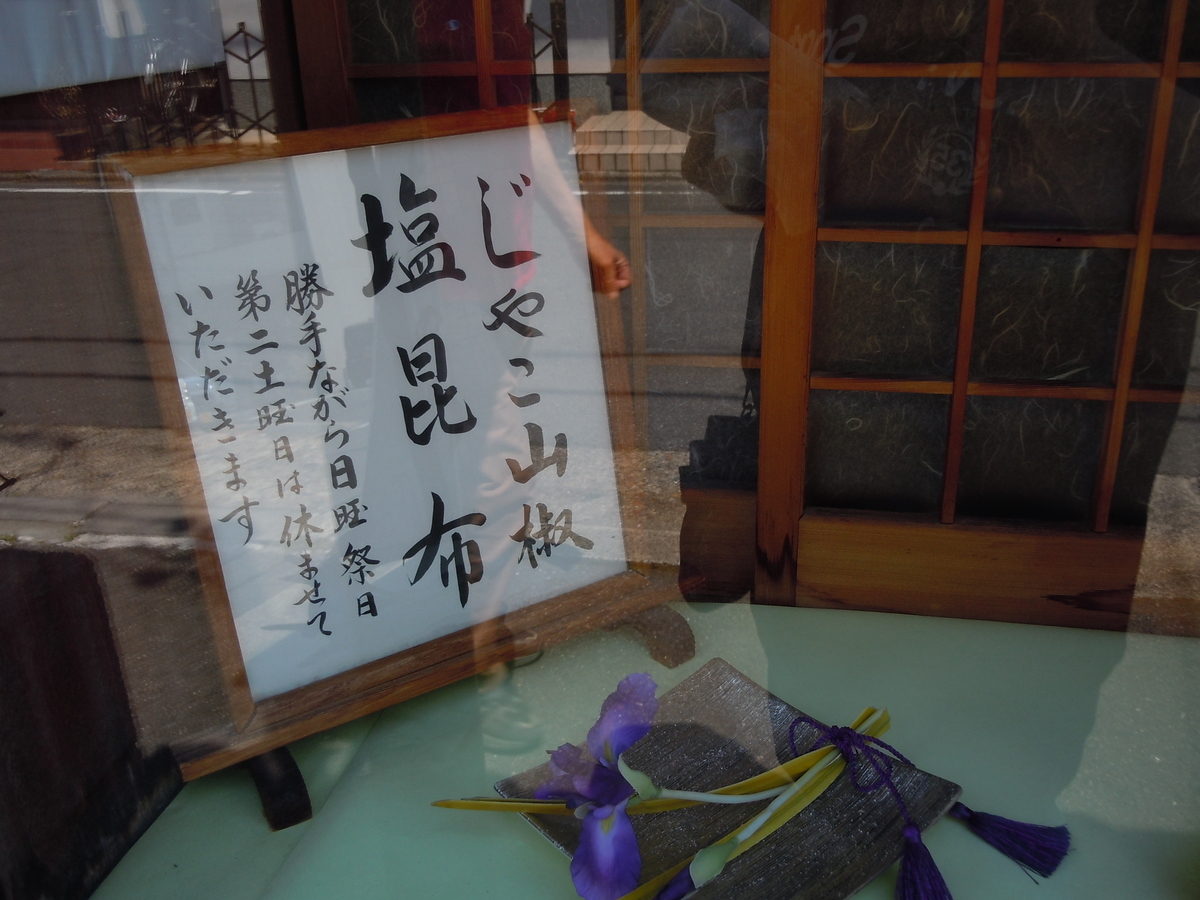 じゃこ山椒
塩昆布
勝手ながら日曜祭日
第二土曜日は休ませて
いただきます